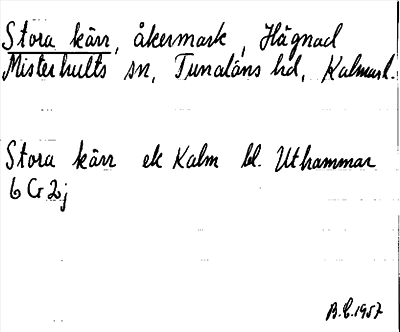 Stora kärr, åkermark, Hägnad
Misterhults sn, Tunaläns hd, Kalmarl.
Stora kärr ek Kalm bl. Uthammar
6 G 2j
B.C. 1957